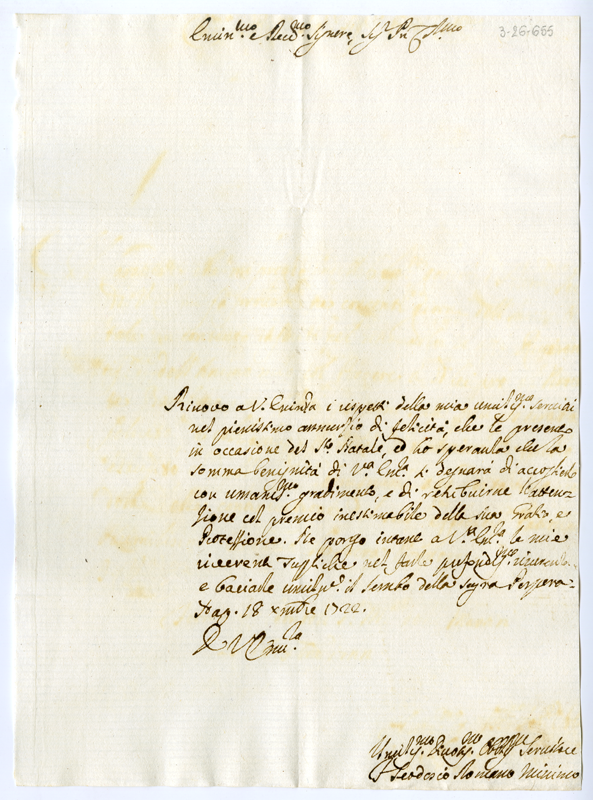 3-26-655
Emin.mo e Rev.mo Signore, Sig.r P.ne Col.mo
Rinovo a V. Eminza i rispetti della mia umiliss.ma servitù
nel pienissimo annunzio di felicità, che le presento
in occasione del S.to Natale, ed ho speranza che la
somma benignità di V.ra Em.za si degnarà di accoglierlo
con umaniss.mo gradimento, e di retribuirne l'atten-
zione col premio inestimabile della sua Grazia, e
Protessione. Ne porgo intanto a V.ra Em.za le mie
riverenti suppliche nel farle profondiss.mo riverenza
e baciarle umilm.te il lembo della Sagra Porpora.
Nap. 18 Xmbre 1722.
Di V. Em.za
Umiliss.mo Devotiss.mo Obblig.mo Servitore
F. Teodosio Romano Minimo